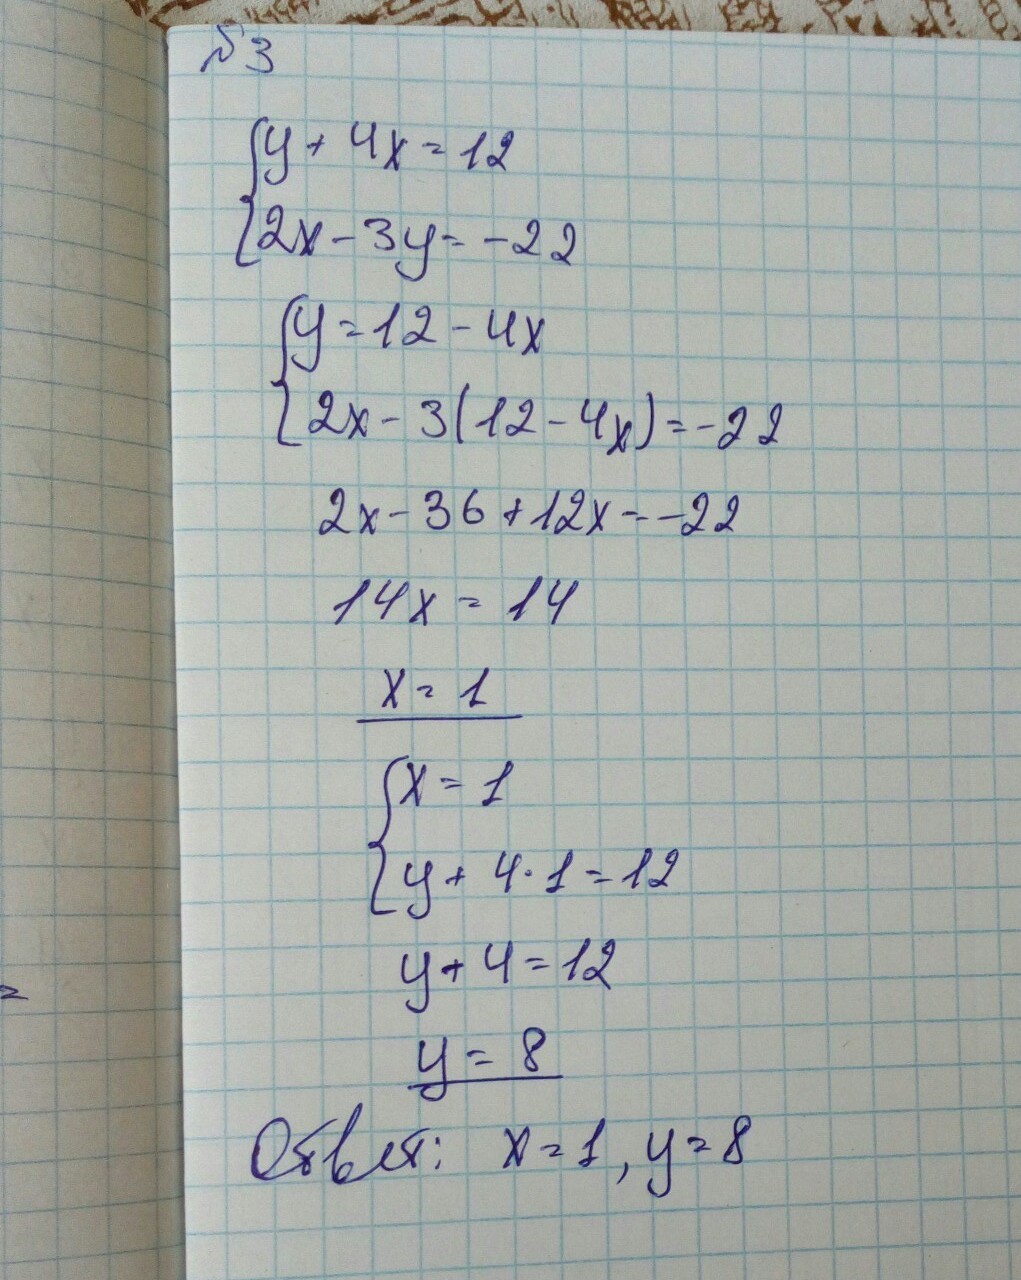 №3
{y + 4x = 12
{2x - 3y = -22
{y = 12 - 4x
{2x - 3(12 - 4x) = -22
2x - 36 + 12x = -22
14x = 14
x = 1
{x = 1
{y + 4·1 = 12
y + 4 = 12
=
y = 8
Ответ: x = 1, y = 8